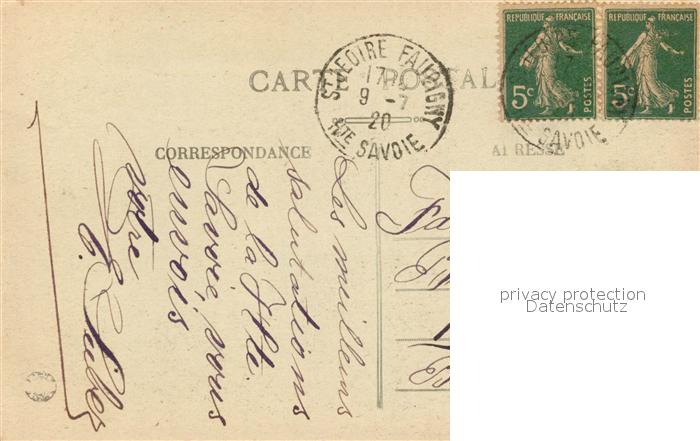 CARTE POSTALE
ST JEOIRE FAUCIGNY
17
9 -7
20
HTE SAVOIE
REPUBLIQUE FRANÇAISE
5c
POSTES
REPUBLIQUE FRANÇAISE
5c
POSTES
SAVOIE
CORRESPONDANCE
ADRESSE
Les meilleurs
salutations
de la Hte.
Savoie, vous
envois
votre
privacy protection
Datenschutz